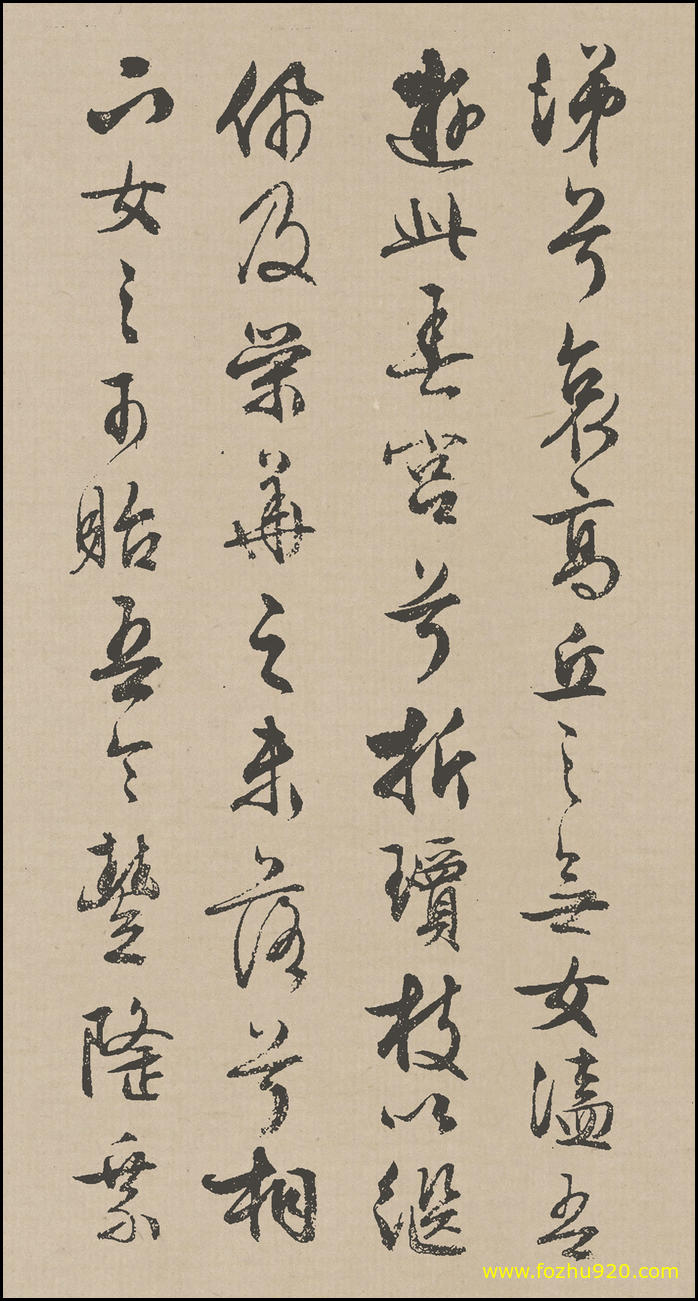 涕兮哀高丘之無女溘吾
遊此春宮兮折瓊枝以繼
佩及榮華之未落兮相
下女之可貽吾令豐隆乘
www.fozhu920.com